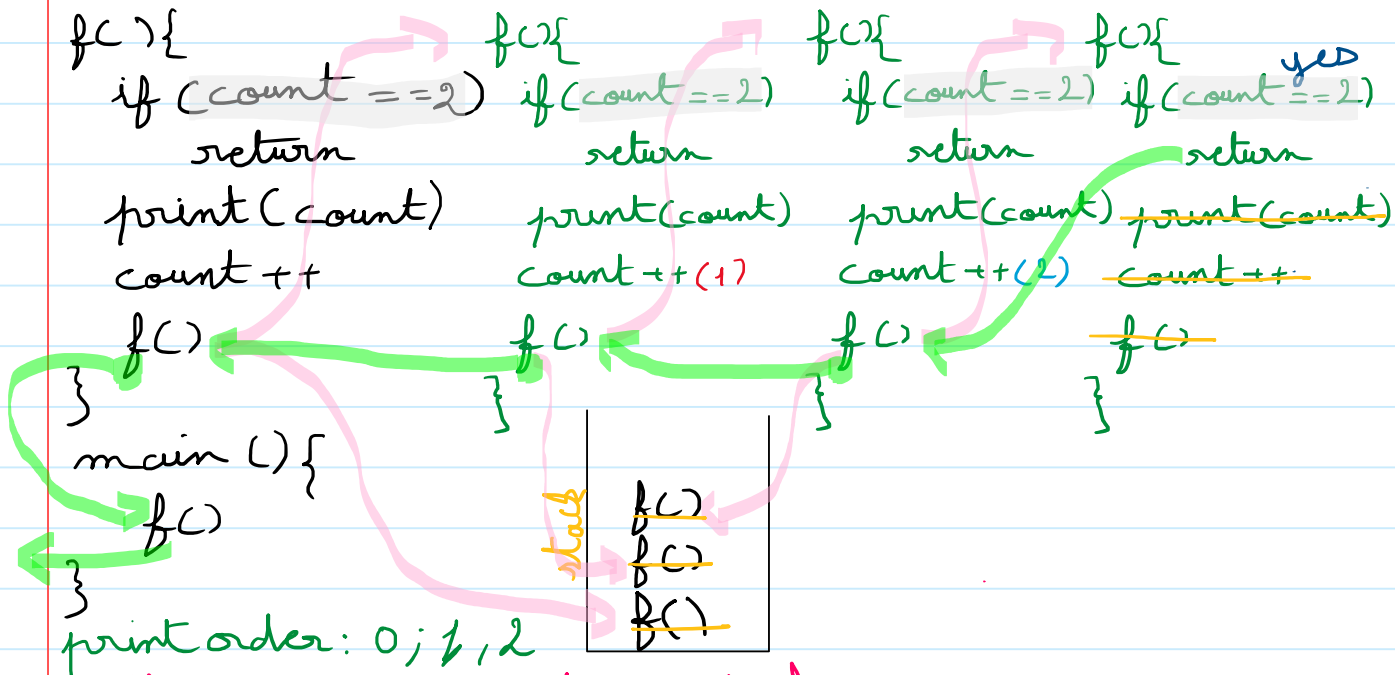 f(){
if (count ==2)
return
print(count)
count++
f()
}
main(){
f()
}
print order: 0, 1, 2
f(){
if(count==2)
return
print(count)
count++(1)
f()
}
f(){
if(count==2)
return
print(count)
count++(2)
f()
}
f(){
yes
if(count==2)
return
print(count)
count++
f()
}
stack
f()
f()
f()